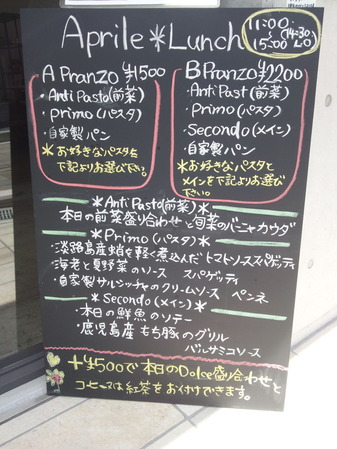 Aprile*Lunch
11:00
〜
15:00
(14:30
LO)
A Pranzo ¥1500
・Anti Pasto(前菜)
・Primo(パスタ)
・自家製パン
*お好きなパスタを
下記よりお選び下さい。
B Pranzo ¥2200
・Anti Past(前菜)
・Primo(パスタ)
・Secondo(メイン)
・自家製パン
*お好きなパスタと
メインを下記よりお選び
下さい。
*Anti Pasto(前菜)*
本日の前菜盛り合わせと旬菜のバーニャカウダ
*Primo(パスタ)*
・淡路島産蛸を軽く煮込んだトマトソーススパゲッティ
・海老と夏野菜のソース スパゲッティ
・自家製サルシッチャのクリームソース ペンネ
*Secondo(メイン)*
・本日の鮮魚のソテー
・鹿児島産もち豚のグリル
バルサミコソース
+¥500で本日のDolce盛り合わせと
コーヒー又は紅茶をお付けできます。